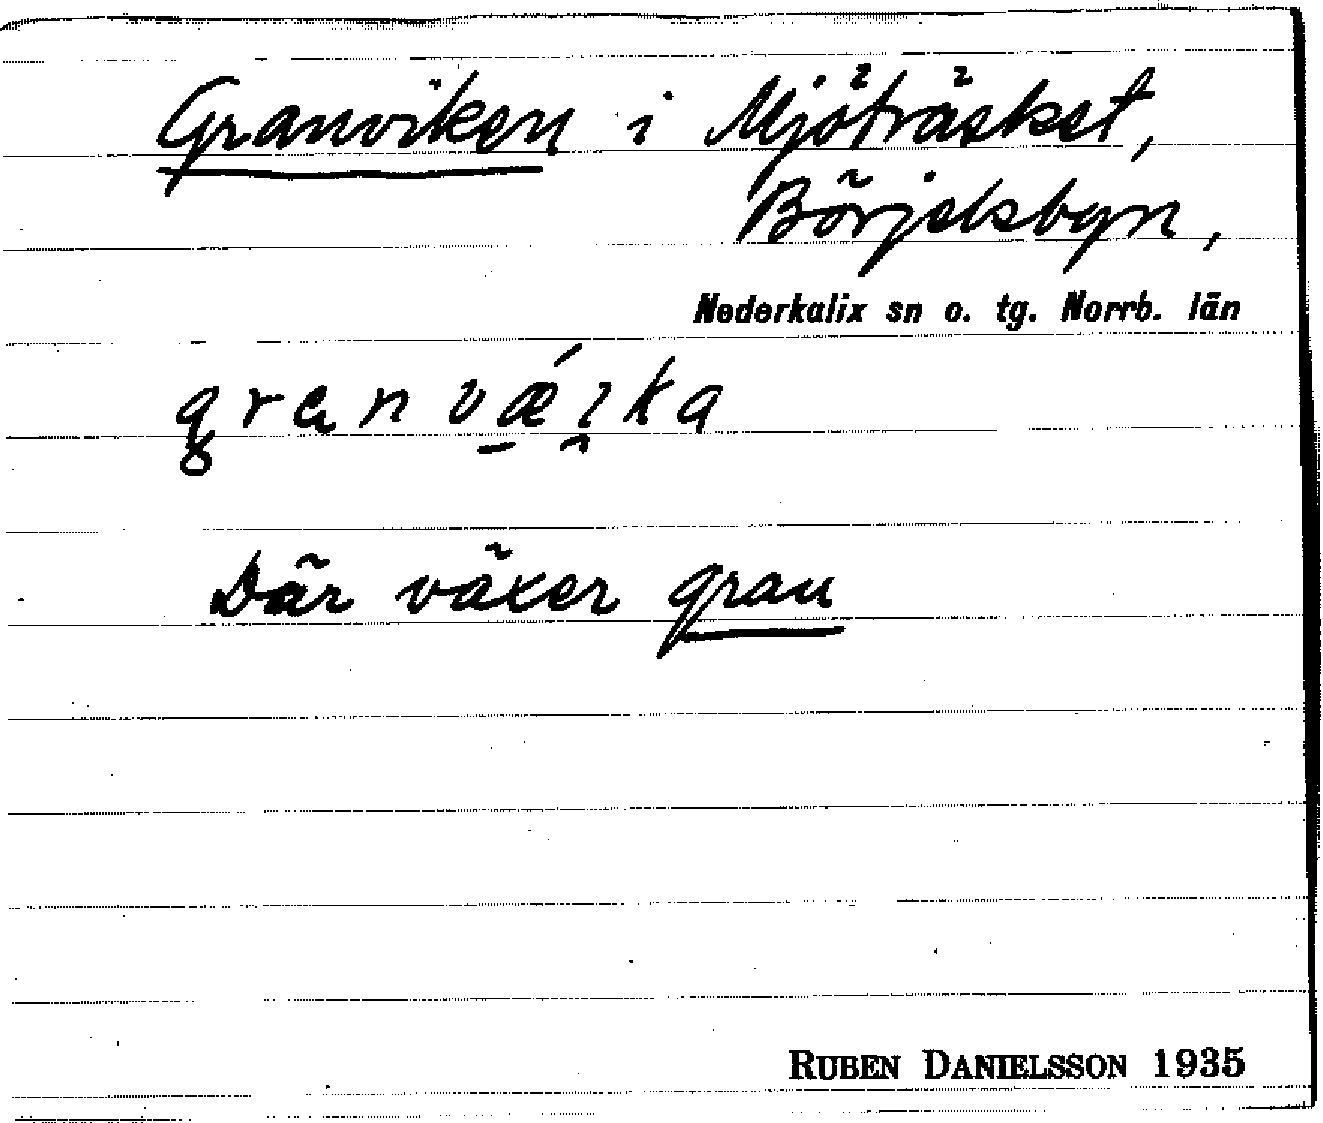 Granviken i Mjöträsket,
Börjelsbyn,
Nederkalix sn o. tg. Norrb. län
granvǽıka
Där växer gran
RUBEN DANIELSSON 1935